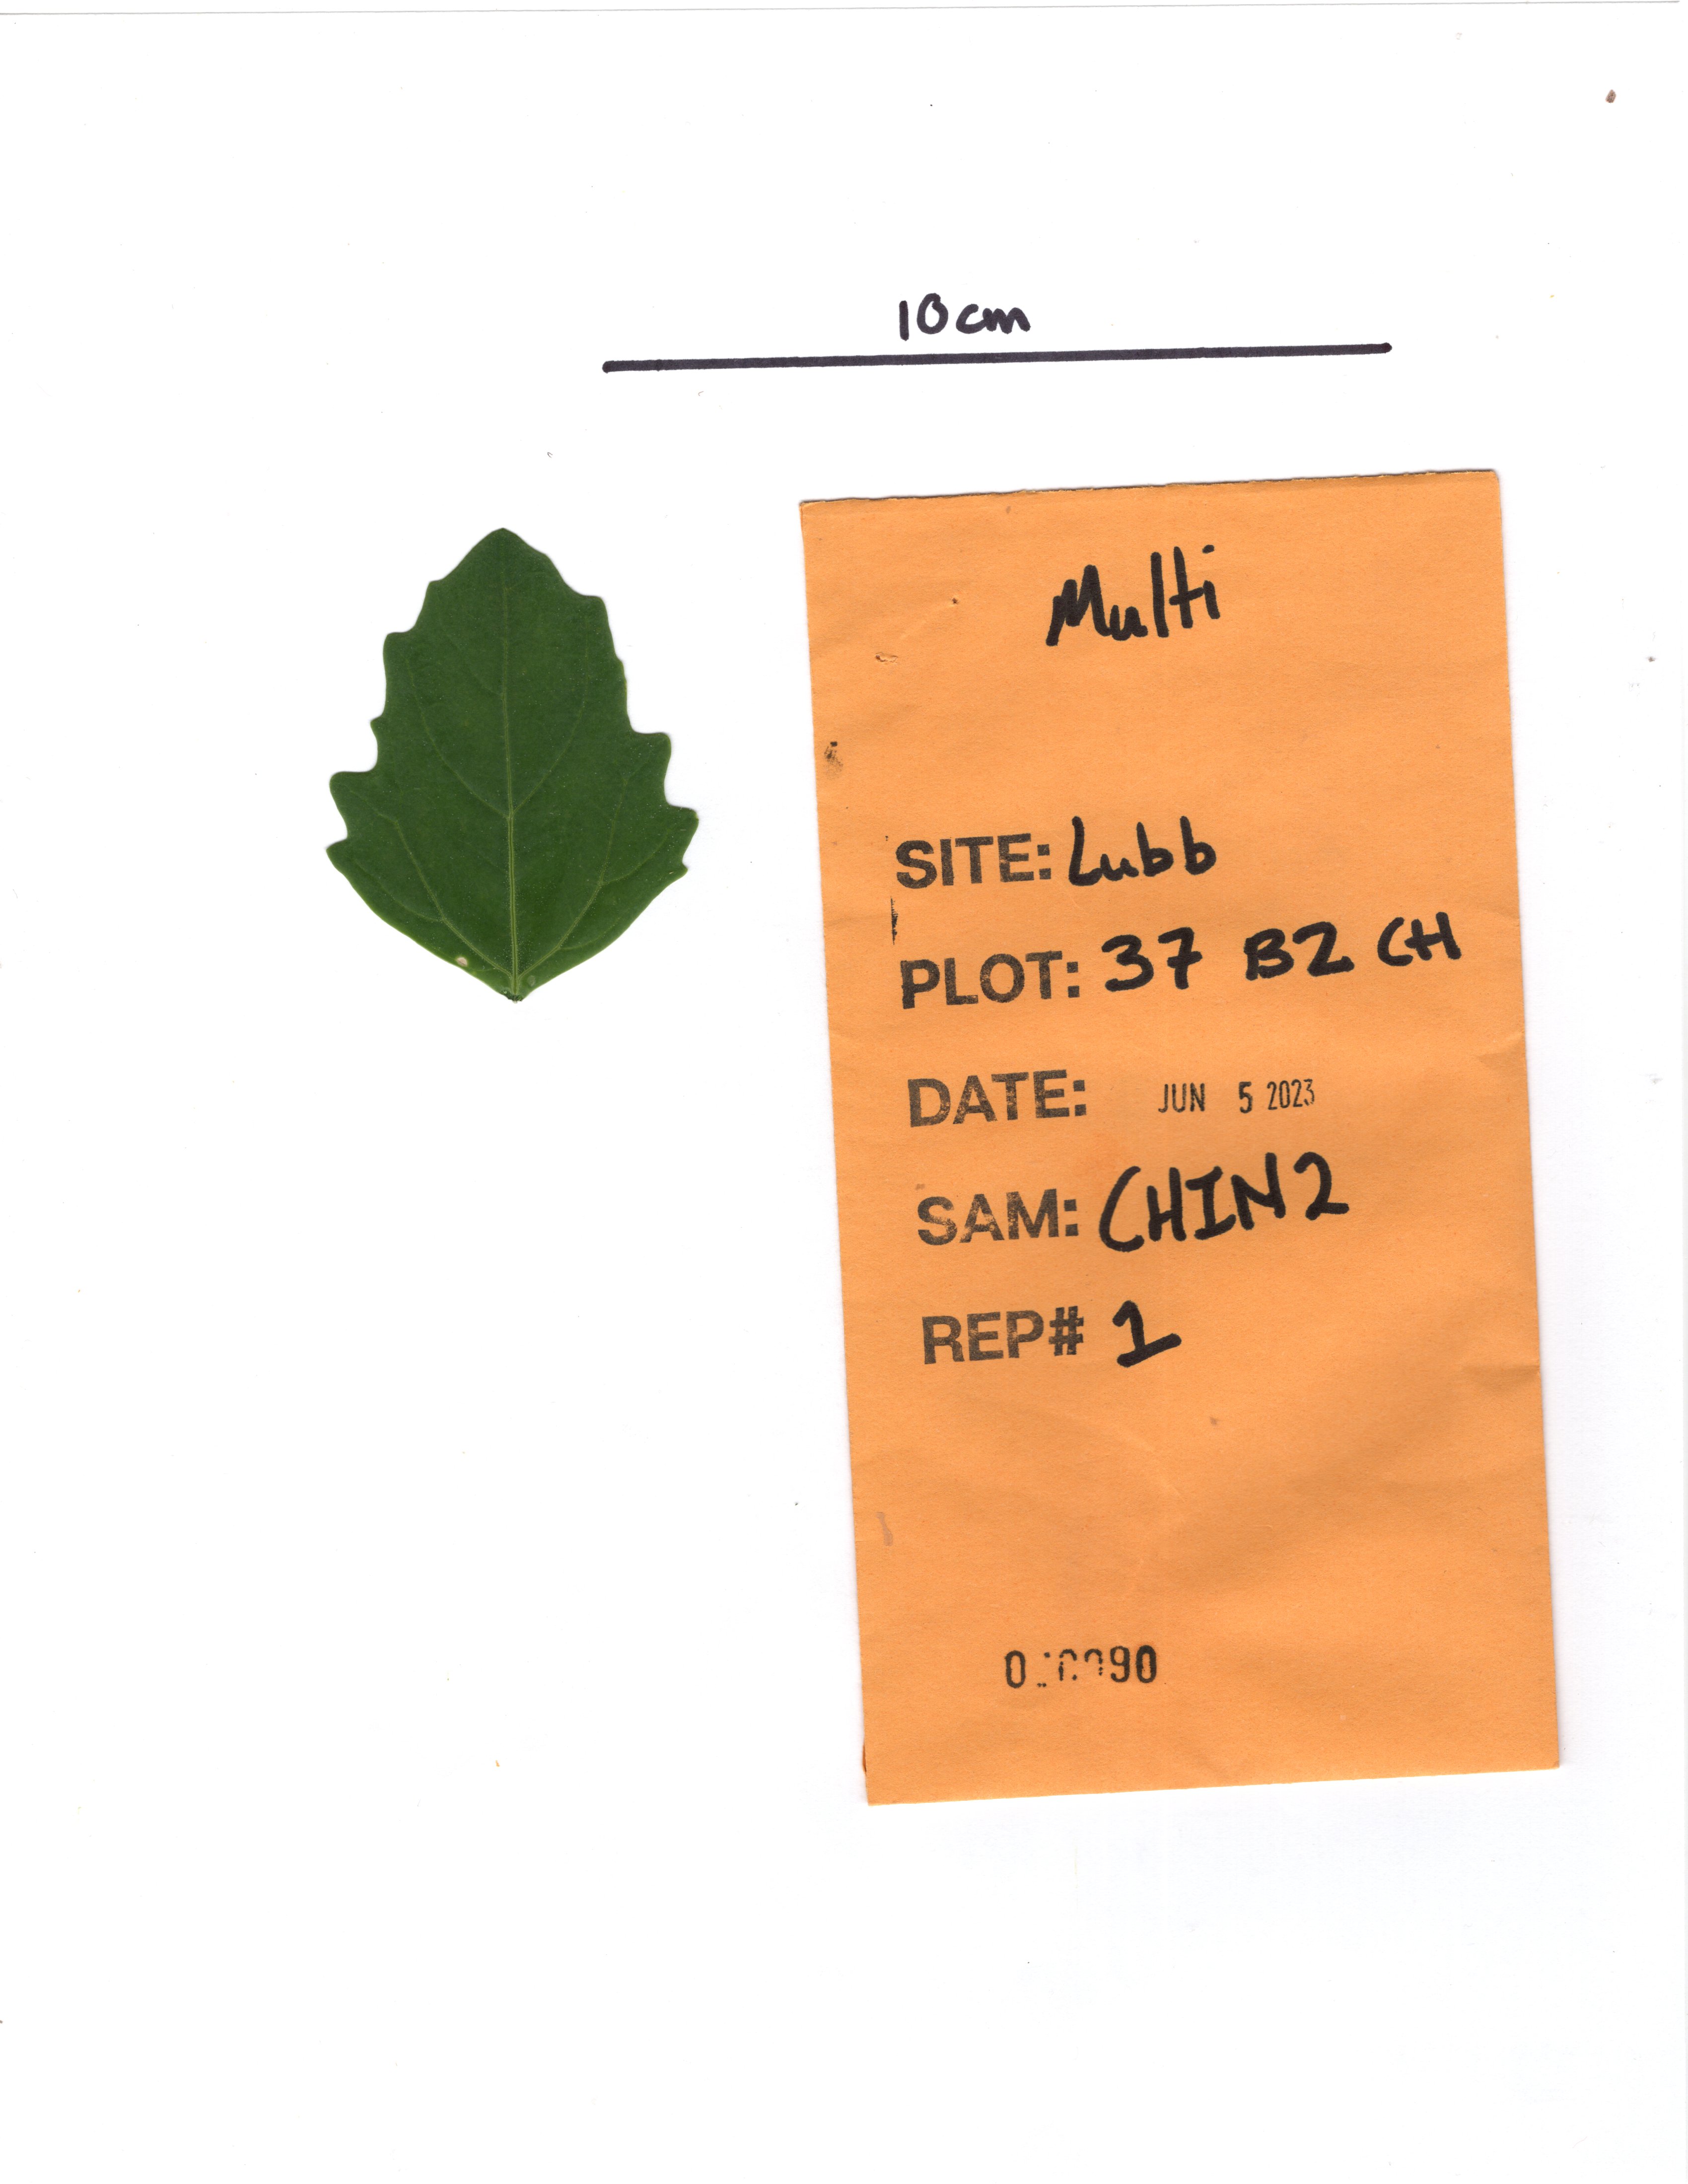 10cm
Multi
SITE: Lubb
PLOT: 37 B2 CH
DATE: JUN 5 2023
SAM: CHIN2
REP# 1